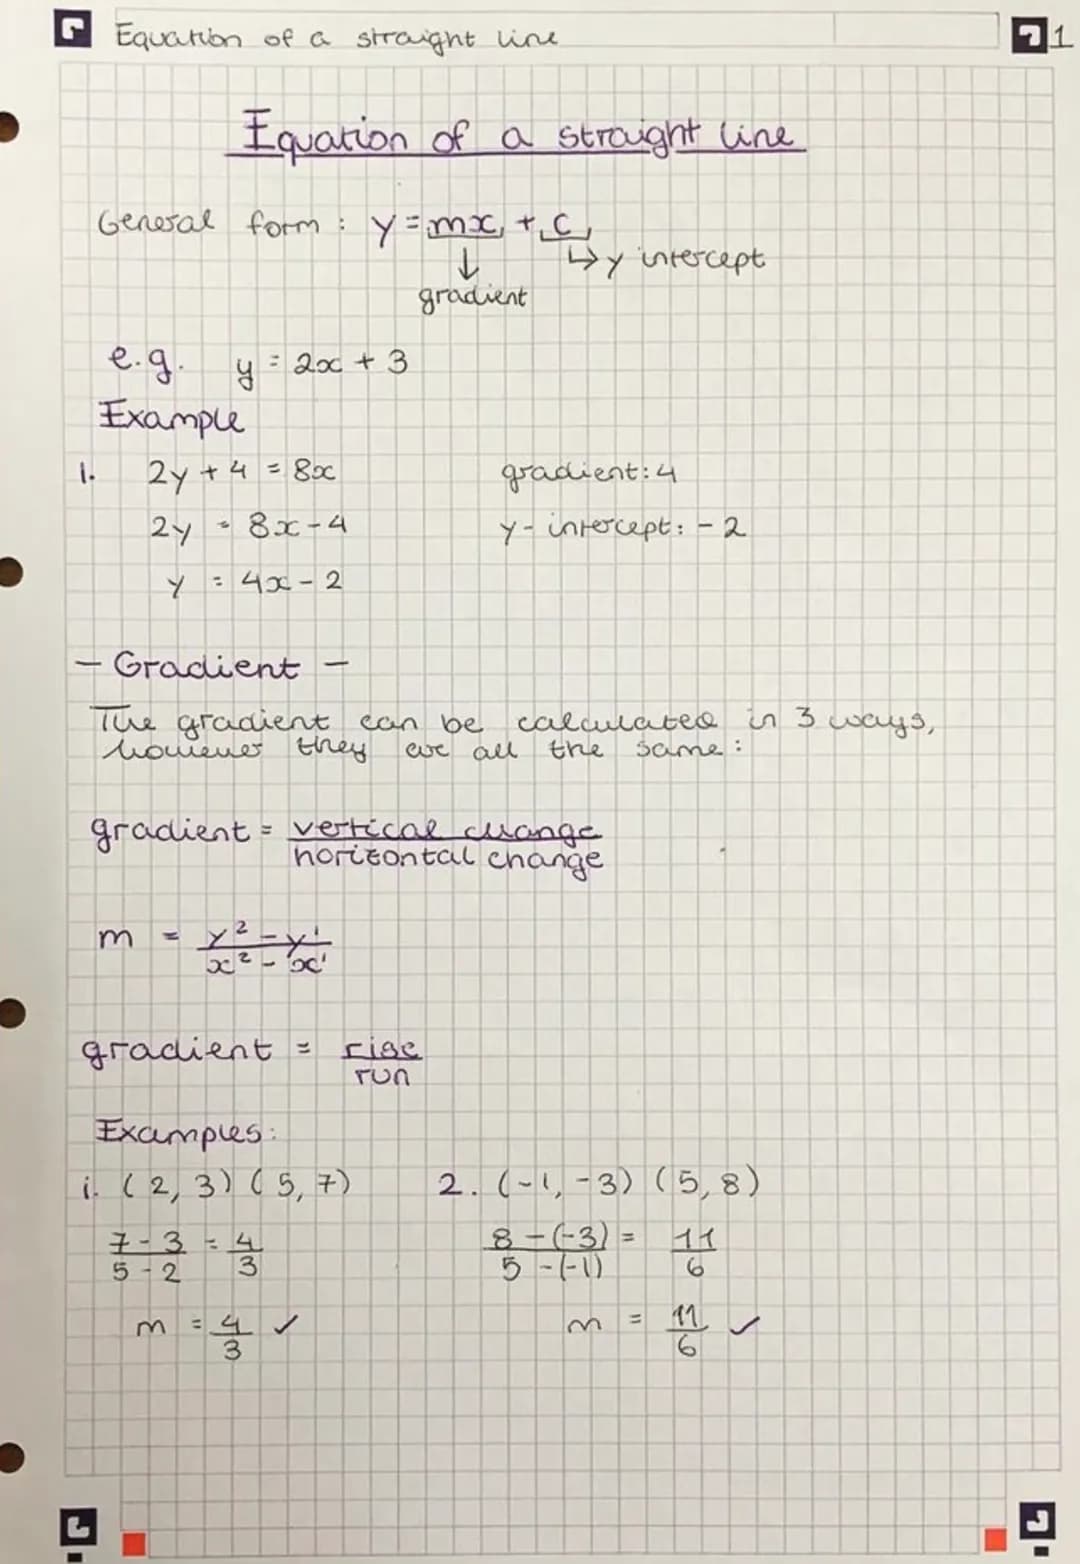 Equation of a straight line
1
Equation of a straight line
General form : y = mx + c
↓ ↳ y intercept
gradient
e.g. y = 2x + 3
Example
1. 2y + 4 = 8x gradient: 4
2y = 8x - 4 y - intercept: - 2
y = 4x - 2
- Gradient -
The gradient can be calculated in 3 ways,
however they are all the same :
gradient = vertical change
horizontal change
m = y² - y¹
x² - x¹
gradient = rise
run
Examples:
i. (2, 3) (5, 7) 2. (-1, -3) (5, 8)
7 - 3 = 4 8 - (-3) = 11
5 - 2 3 5 - (-1) 6
m = 4 ✓ m = 11 ✓
3 6